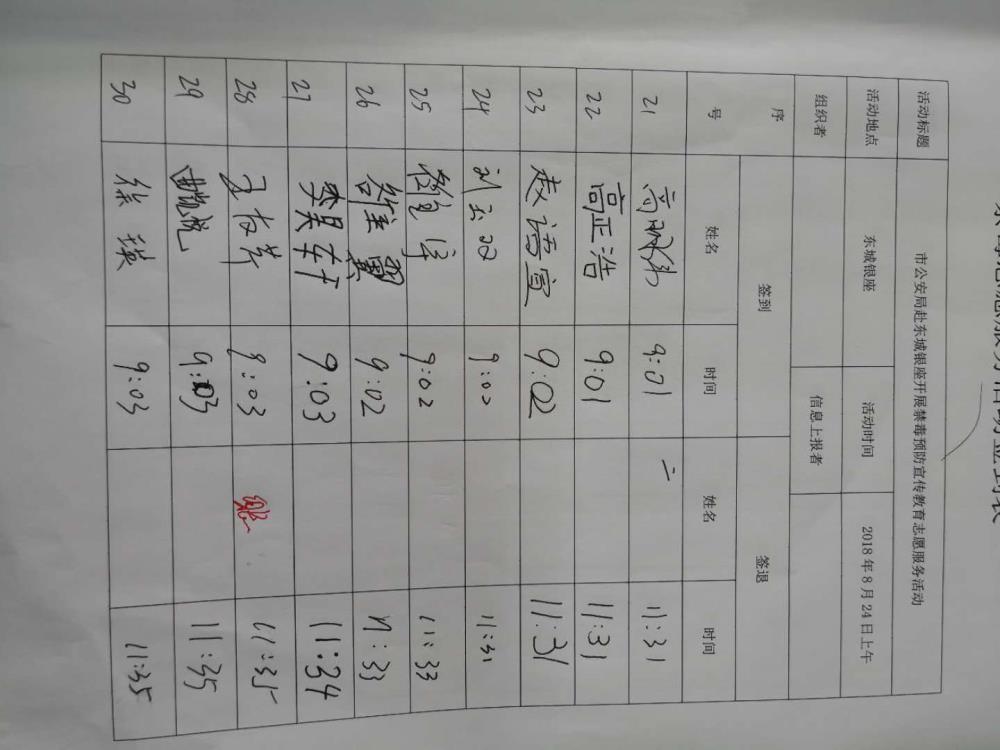 活动标题 市公安局赴东城银座开展禁毒预防宣传教育志愿服务活动
活动地点 东城银座 活动时间 2018年8月24日上午
组织者 信息上报者
序号 签到 签退
姓名 时间 姓名 时间
21 9:01 11:31
22 高正浩 9:01 11:31
23 赵语宣 9:02 11:31
24 9:00 11:31
25 9:02 11:33
26 9:02 11:33
27 李昊轩 9:03 11:34
28 9:03 11:35
29 9:03 11:35
30 徐瑛 9:03 11:35